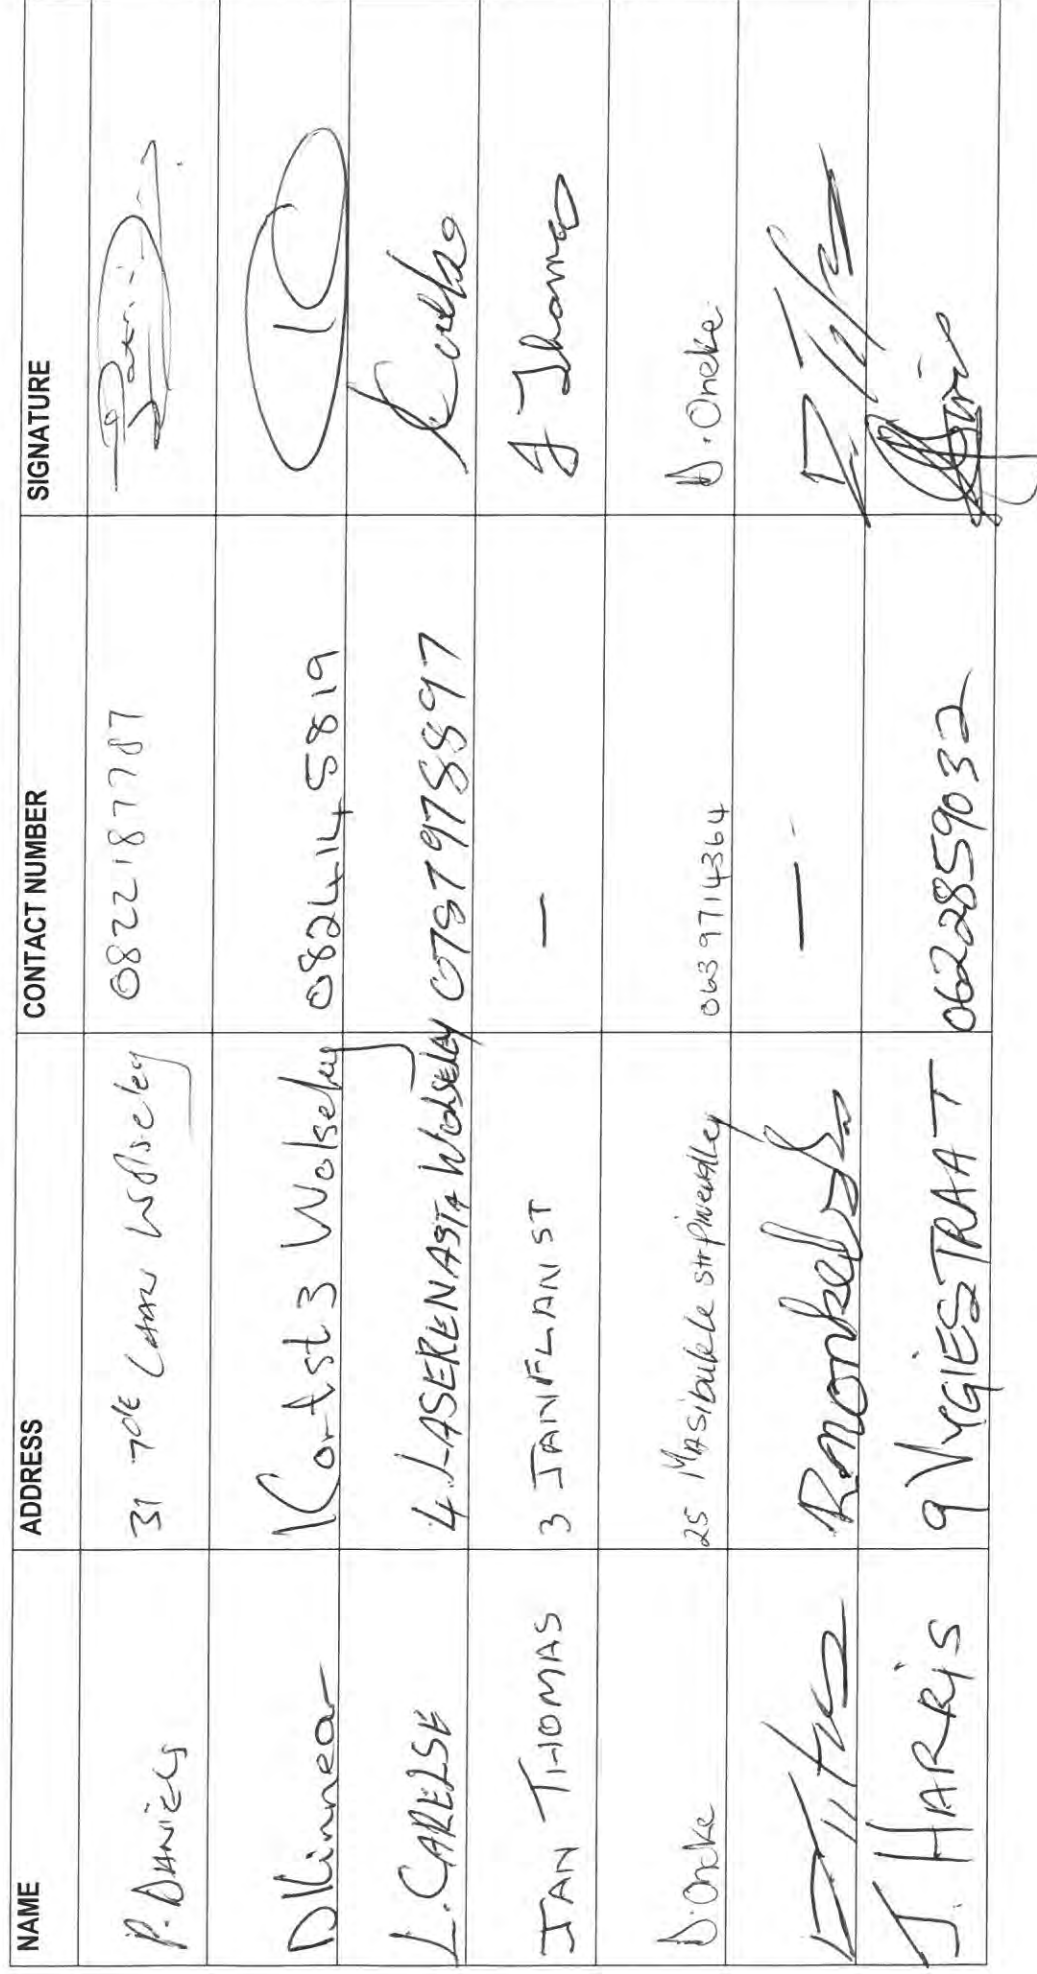 NAME ADDRESS CONTACT NUMBER SIGNATURE
P. DANIELS 31 Wolseley 0822187787
D Kinnear Kort st 3 Wolseley 0824145819
L. CARELSE 4 Wolseley 0787978897
JAN THOMAS 3 JANFLANI ST — J Thomas
D. Oneke 25 Masibulele str Pinevalley 0639714364 D. Oneke
D Titus —
J. HARRIS 9 VYGIESTRAAT 0622859032